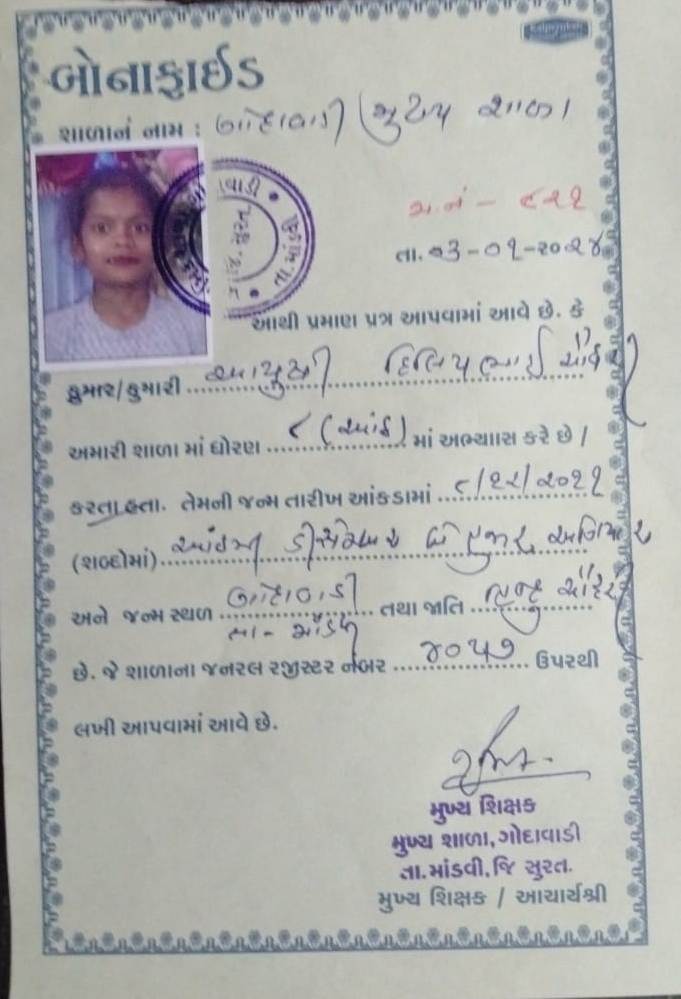 બોનાફાઈડ
શાળાનં નામ : ગોદાવાડી મુખ્ય શાળા
તા. ૦૩-૦૧-૨૦૨૪
આથી પ્રમાણ પત્ર આપવામાં આવે છે. કે
કુમાર/કુમારી ........ દિલિપભાઈ ચૌધરી
અમારી શાળા માં ધોરણ ૮ (આઠ) માં અભ્યાાસ કરે છે /
કરતા હતા. તેમની જન્મ તારીખ આંકડામાં ૮/૧૨/૨૦૧૧
(શબ્દોમાં) આઠમી ડીસેમ્બર બે હજાર અગિયાર
અને જન્મ સ્થળ ગોદાવાડી તથા જાતિ હિન્દુ ચૌધરી
તા- માંડવી
છે. જે શાળાના જનરલ રજીસ્ટર નંબર ૪૦૫૭ ઉપરથી
લખી આપવામાં આવે છે.
મુખ્ય શિક્ષક
મુખ્ય શાળા, ગોદાવાડી
તા. માંડવી, જિ સુરત.
મુખ્ય શિક્ષક / આચાર્યશ્રી